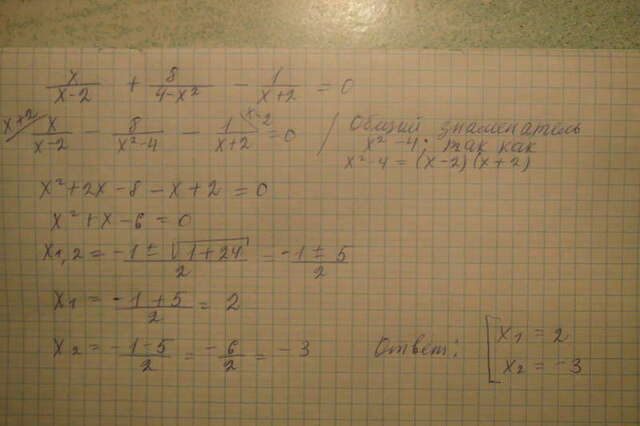 x/(x-2) + 8/(4-x²) - 1/(x+2) = 0
x+2/ x/(x-2) - 8/(x²-4) - 1/(x+2) \x-2 = 0 / Общий знаменатель
x²-4; так как
x²-4 = (x-2)(x+2)
x²+2x-8-x+2=0
x²+x-6=0
x1,2 = (-1±√(1+24))/2 = (-1±5)/2
x1 = (-1+5)/2 = 2
x2 = (-1-5)/2 = -6/2 = -3
Ответ: [ x1 = 2
x2 = -3